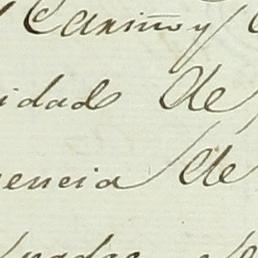 Cariño y
idad de
encia de